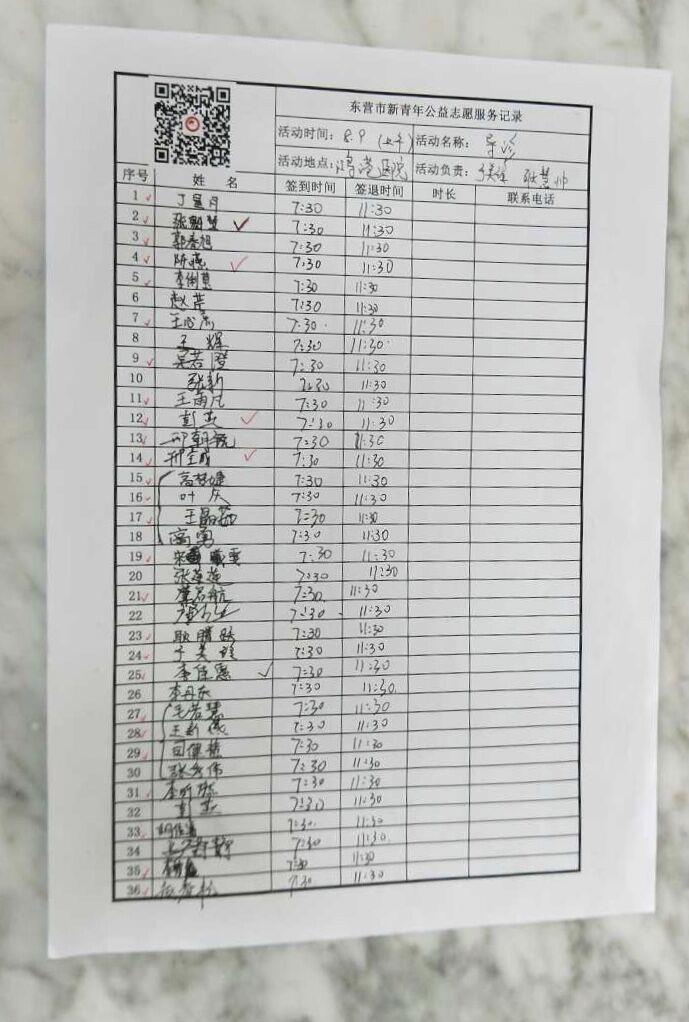 东营市新青年公益志愿服务记录
活动时间: 8.9 (上午) 活动名称: 导诊
活动地点: 鸿港医院 活动负责:
序号 姓 名 签到时间 签退时间 时长 联系电话
1 7:30 11:30
2 张 7:30 11:30
3 郭春旭 7:30 11:30
4 陈燕 7:30 11:30
5 李俐慧 7:30 11:30
6 赵芹 7:30 11:30
7 7:30 11:30
8 王辉 7:30 11:30
9 吴若澄 7:30 11:30
10 张新 7:30 11:30
11 王雨凡 7:30 11:30
12 彭英 7:30 11:30
13 邢朝 7:30 11:30
14 邢 7:30 11:30
15 高梦婕 7:30 11:30
16 叶 7:30 11:30
17 王晶茹 7:30 11:30
18 高勇 7:30 11:30
19 宋 7:30 11:30
20 张莲莲 7:30 11:30
21 董若航 7:30 11:30
22 7:30 11:30
23 耿腾跃 7:30 11:30
24 于美玲 7:30 11:30
25 李佳惠 7:30 11:30
26 李丹 7:30 11:30
27 毛若慧 7:30 11:30
28 王新 7:30 11:30
29 田 7:30 11:30
30 张 伟 7:30 11:30
31 李昕 7:30 11:30
32 7:30 11:30
33 7:30 11:30
34 7:30 11:30
35 7:30 11:30
36 7:30 11:30